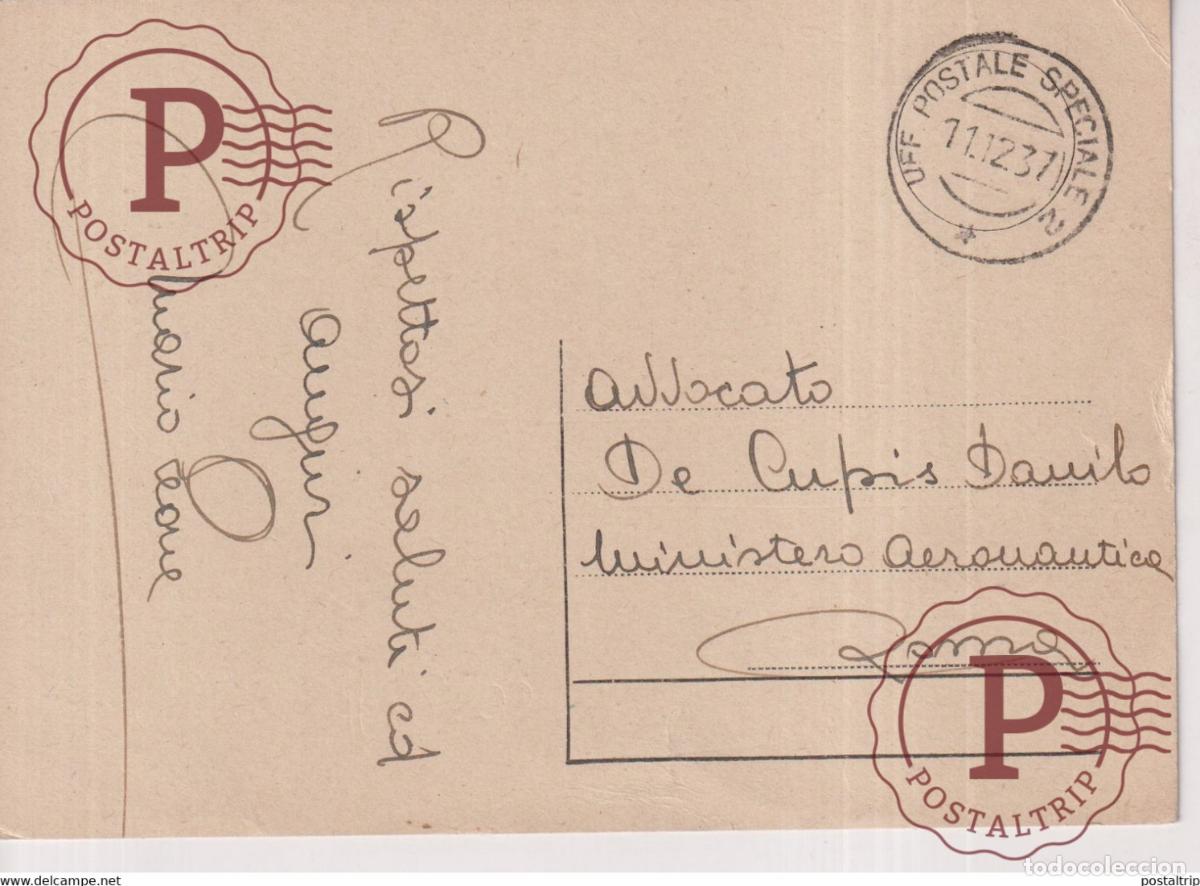 UFF. POSTALE SPECIALE 2
11.12.37
Rispettosi saluti ed
auguri
Mario Leone
Avvocato
De Cupis Danilo
Ministero Aeronautica
Roma
P
POSTALTRIP
P
POSTALTRIP
todocoleccion
www.delcampe.net
postaltrip